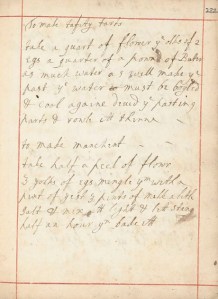 To make taffity tarts
take a quart of flower ye whites of 2
egs a quarter of a pound of Butter
as much water as will make ye
past ye water must be Boyled
& cool againe devid ye past in
parts & roule it thinne
to make manchent
take half a peck of flowr
3 yolks of egs mingle ym with a
pint of yest 3 pints of milk a litle
salt & mix it light & let it stand
half an hour yn bake it